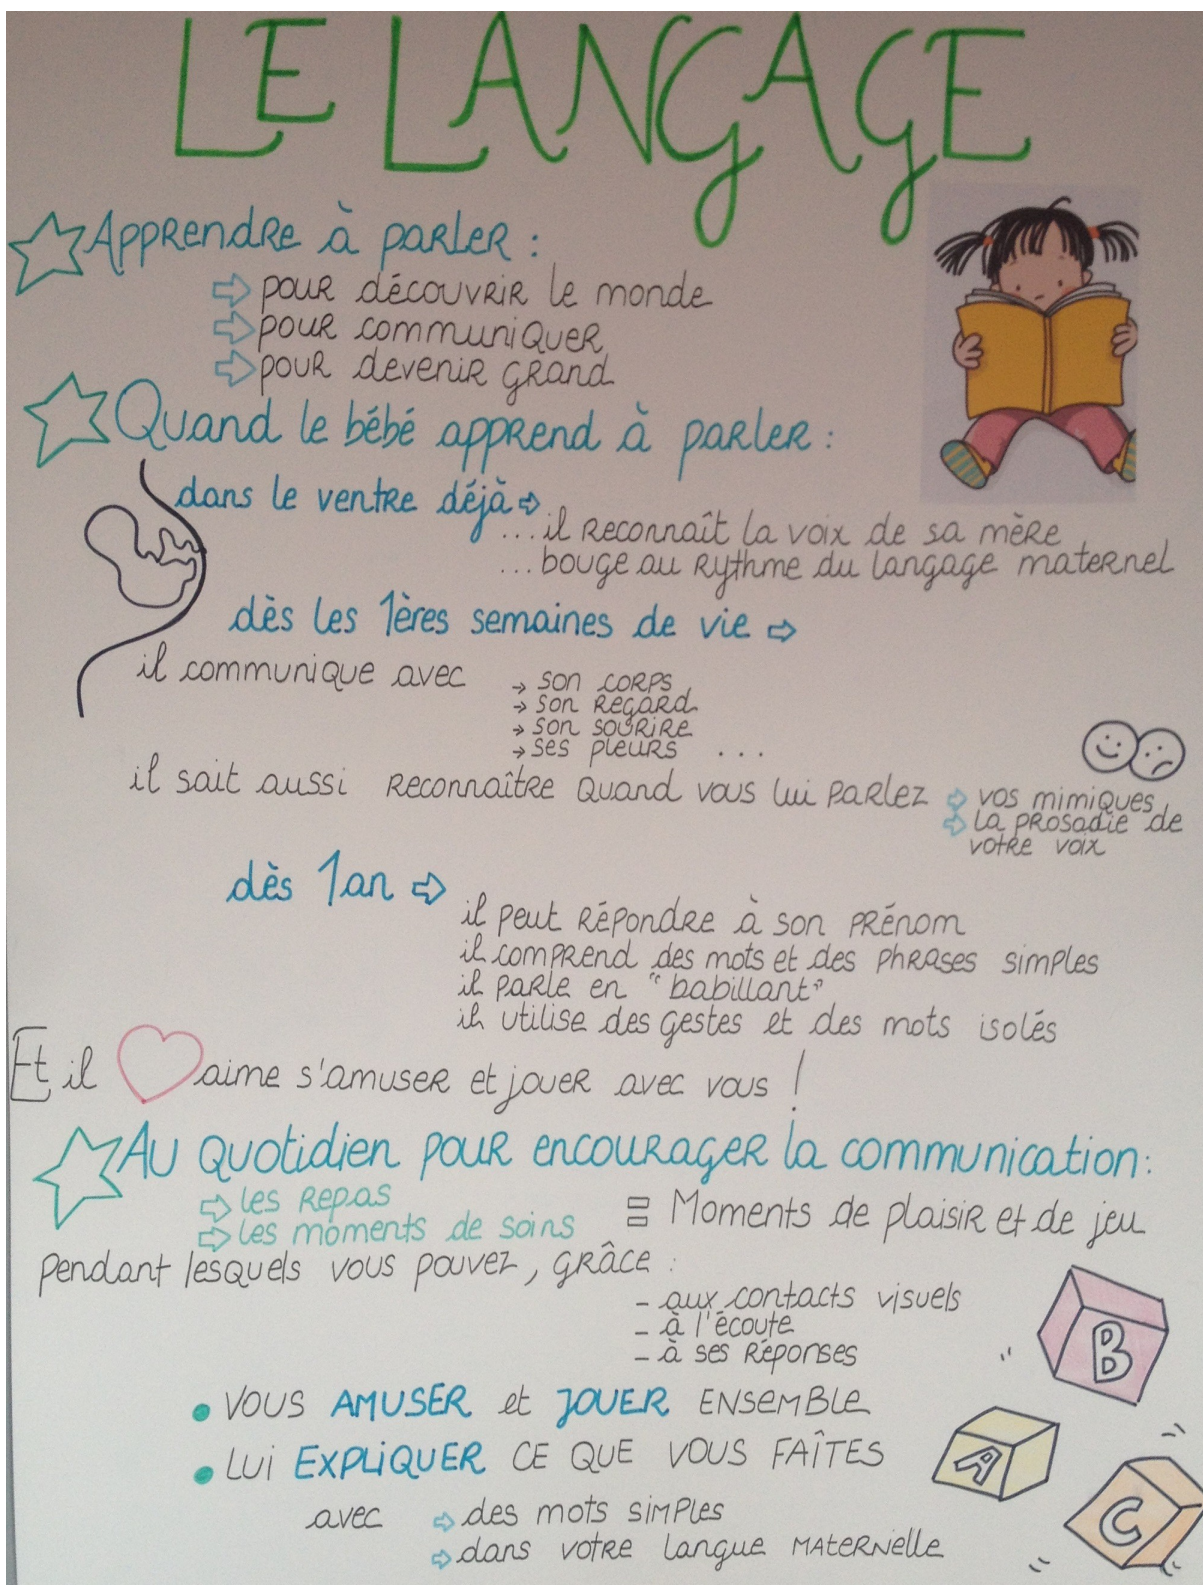 LE LANGAGE
Apprendre à parler :
⇨ pour découvrir le monde
⇨ pour communiquer
⇨ pour devenir grand
Quand le bébé apprend à parler :
dans le ventre déjà ⇨
...il reconnaît la voix de sa mère
...bouge au rythme du langage maternel
dès les 1ères semaines de vie ⇨
il communique avec → son corps
→ son regard
→ son sourire
→ ses pleurs ...
il sait aussi reconnaître quand vous lui parlez ⇨ vos mimiques
⇨ la prosadie de
votre voix
dès 1 an ⇨
il peut répondre à son prénom
il comprend des mots et des phrases simples
il parle en "babillant"
il utilise des gestes et des mots isolés
Et il aime s'amuser et jouer avec vous !
Au quotidien pour encourager la communication :
⇨ les repas
⇨ les moments de soins = Moments de plaisir et de jeu
pendant lesquels vous pouvez, grâce :
- aux contacts visuels
- à l'écoute
- à ses réponses
• VOUS AMUSER et JOUER ENSEMBLE
• LUI EXPLIQUER CE QUE VOUS FAÎTES
avec ⇨ des mots simples
⇨ dans votre langue MATERNELLE
B
A
C